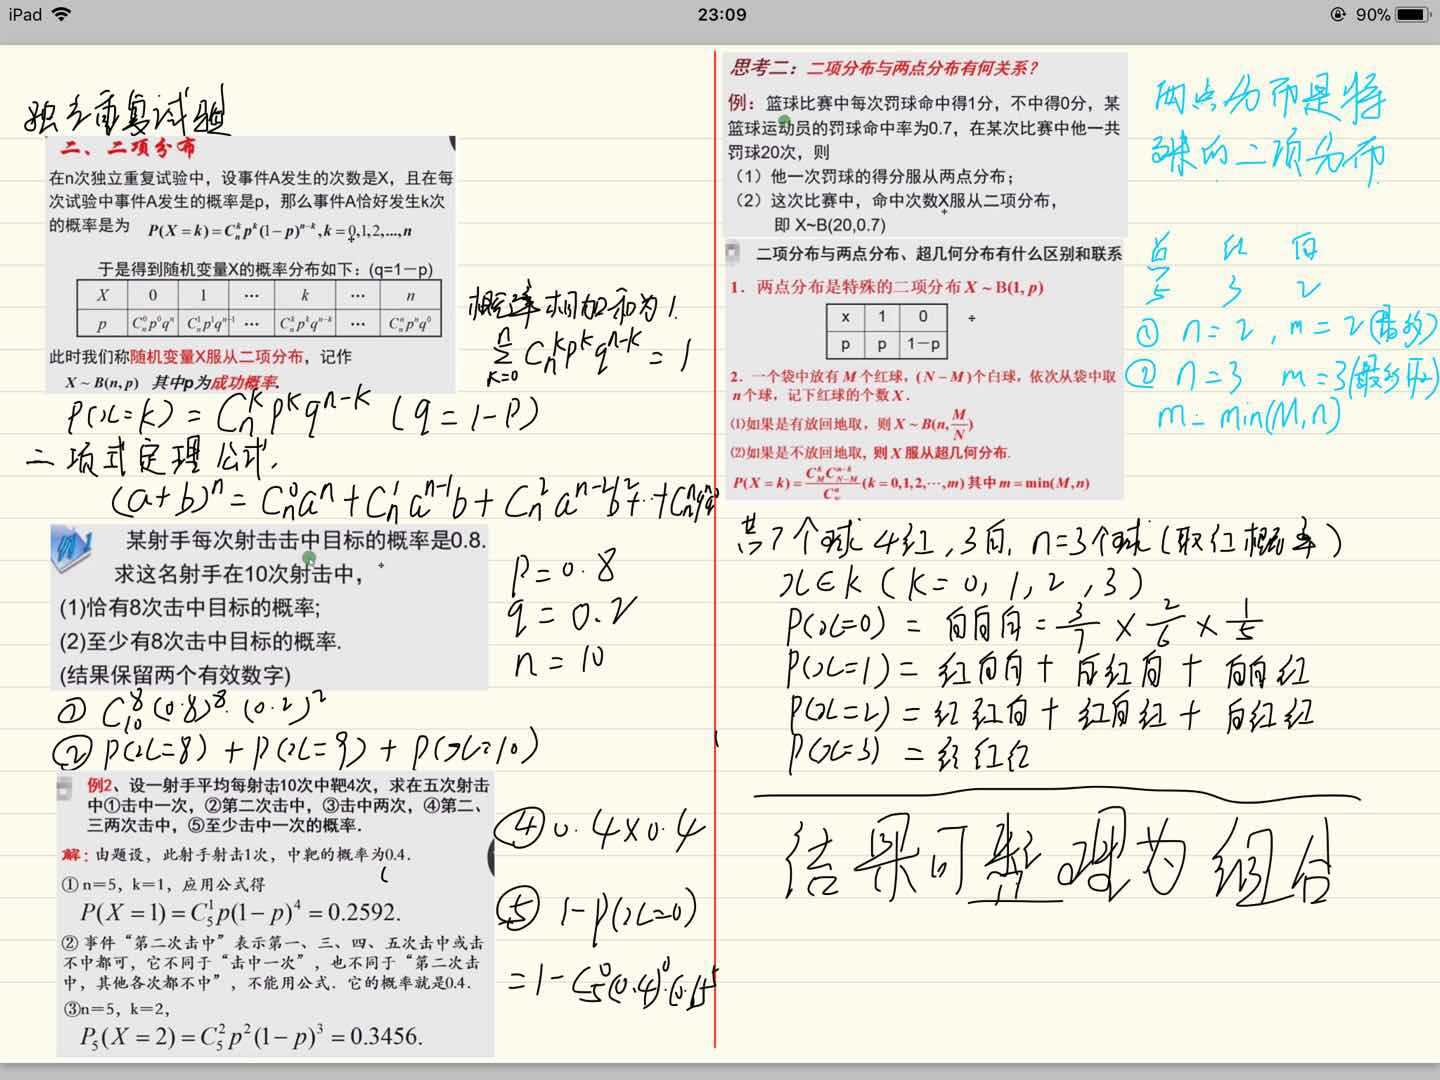 iPad
23:09
90%
独立重复试验
二、二项分布
在n次独立重复试验中，设事件A发生的次数是X，且在每
次试验中事件A发生的概率是p，那么事件A恰好发生k次
的概率是为 P(X=k)=Cₙᵏpᵏ(1−p)ⁿ⁻ᵏ,k=0,1,2,...,n
于是得到随机变量X的概率分布如下：(q=1－p)
X 0 1 … k … n
p Cₙ⁰p⁰qⁿ Cₙ¹p¹qⁿ⁻¹ … Cₙᵏpᵏqⁿ⁻ᵏ … Cₙⁿpⁿq⁰
此时我们称随机变量X服从二项分布，记作
X ~ B(n,p) 其中p为成功概率.
概率相加和为1.
n
Σ Cₙᵏpᵏqⁿ⁻ᵏ = 1
k=0
P(x=k) = Cₙᵏ pᵏ qⁿ⁻ᵏ (q = 1-p)
二项式定理公式.
(a+b)ⁿ = Cₙ⁰aⁿ + Cₙ¹aⁿ⁻¹b + Cₙ²aⁿ⁻²b² + … +
例1
某射手每次射击击中目标的概率是0.8.
求这名射手在10次射击中，
(1)恰有8次击中目标的概率;
(2)至少有8次击中目标的概率.
(结果保留两个有效数字)
p = 0.8
q = 0.2
n = 10
① C₁₀⁸ (0.8)⁸·(0.2)²
② P(x=8) + P(x=9) + P(x=10)
例2、设一射手平均每射击10次中靶4次，求在五次射击
中①击中一次，②第二次击中，③击中两次，④第二、
三两次击中，⑤至少击中一次的概率．
解：由题设，此射手射击1次，中靶的概率为0.4．
① n＝5，k＝1，应用公式得
P(X=1)=C₅¹p(1−p)⁴=0.2592.
② 事件“第二次击中”表示第一、三、四、五次击中或击
不中都可，它不同于“击中一次”，也不同于“第二次击
中，其他各次都不中”，不能用公式．它的概率就是0.4．
③n＝5，k＝2，
P₅(X=2)=C₅²p²(1−p)³=0.3456.
④ 0.4×0.4
⑤ 1-P(x=0)
= 1 - C₅⁰(0.4)⁰·(0.6)⁵
思考二：二项分布与两点分布有何关系？
例：篮球比赛中每次罚球命中得1分，不中得0分，某
篮球运动员的罚球命中率为0.7，在某次比赛中他一共
罚球20次，则
（1）他一次罚球的得分服从两点分布；
（2）这次比赛中，命中次数X服从二项分布，
即 X~B(20,0.7)
两点分布是特
殊的二项分布
二项分布与两点分布、超几何分布有什么区别和联系
1．两点分布是特殊的二项分布 X ~ B(1,p)
x 1 0
p p 1－p
2．一个袋中放有 M 个红球，(N－M)个白球，依次从袋中取
n个球，记下红球的个数 X．
⑴如果是有放回地取，则 X ~ B(n, M/N)
⑵如果是不放回地取，则 X 服从超几何分布.
P(X=k)=C_M^k C_{N−M}^{n−k}/C_N^n (k=0,1,2,⋯,m) 其中 m=min(M,n)
总 红 白
5 3 2
① n=2, m=2(最多)
② n=3 m=3(最多)
m=min(M,n)
共7个球 4红,3白, n=3个球(取红概率)
x∈k (k=0,1,2,3)
P(x=0) = 白白白 = 3/7 × 2/6 × 1/5
P(x=1) = 红白白 + 白红白 + 白白红
P(x=2) = 红红白 + 红白红 + 白红红
P(x=3) = 红红红
结果可整理为组合